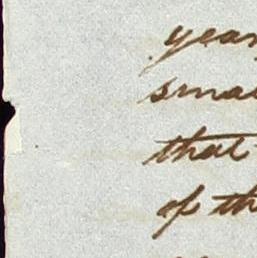 year
smal
that
of th